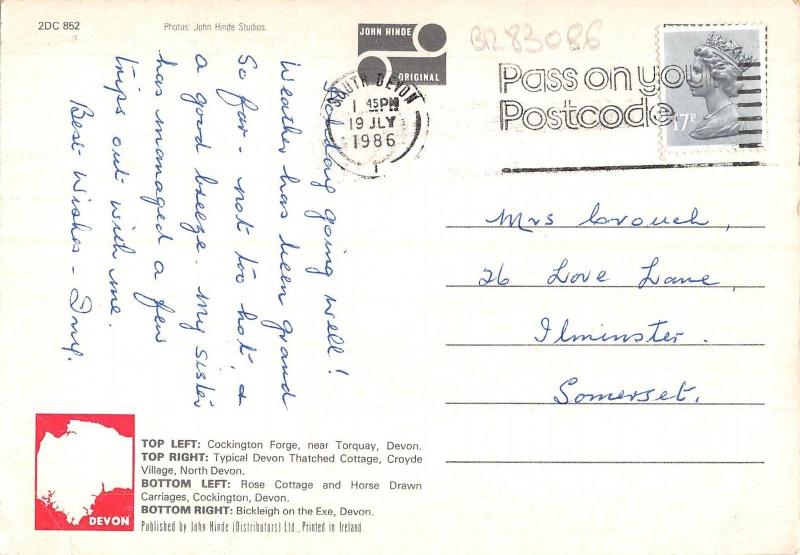 2DC 852
Photos: John Hinde Studios.
JOHN HINDE
ORIGINAL
BR83086
SOUTH DEVON
1 45PM
19 JLY
1986
1
Pass on your
Postcode
17P
Holiday going well!
Weather has been grand
So far - not too hot, &
a good breeze. My sister
has managed a few
trips out with me.
Best Wishes -
Mrs Crouch,
26 Love Lane,
Ilminster.
Somerset.
DEVON
TOP LEFT: Cockington Forge, near Torquay, Devon.
TOP RIGHT: Typical Devon Thatched Cottage, Croyde
Village, North Devon.
BOTTOM LEFT: Rose Cottage and Horse Drawn
Carriages, Cockington, Devon.
BOTTOM RIGHT: Bickleigh on the Exe, Devon.
Published by John Hinde (Distributors) Ltd., Printed in Ireland.